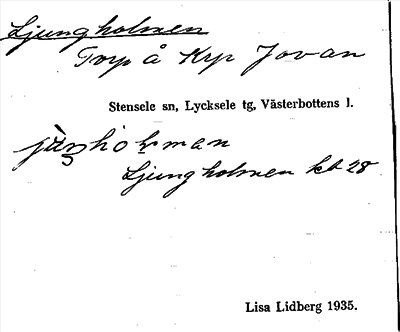 Ljungholmen
Torp å Krp Jovan
Stensele sn, Lycksele tg, Västerbottens l.
Ljungholmen kb 28
Lisa Lidberg 1935.